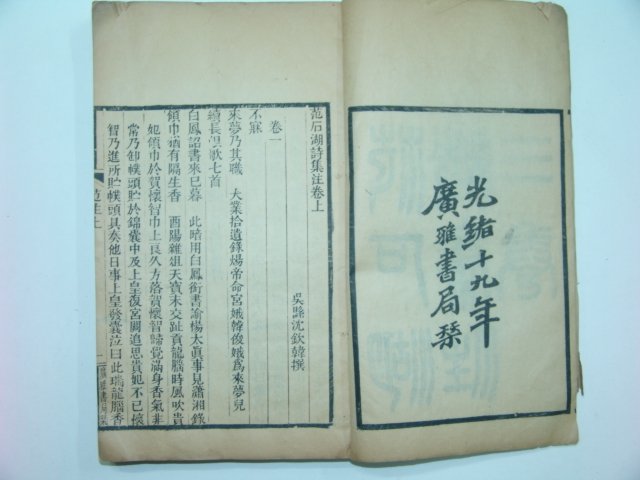 光緒十九年
廣雅書局栞
范石湖詩集注卷上
吳縣沈欽韓撰
卷一
不寐
來夢乃其職　大業拾遺錄煬帝命宮娥韓俊娥爲來夢兒
續長恨歌七首
白鳳詔書來已　此暗用白鳳銜書諭楊太眞事見瀟湘錄
領巾猶有隔生香　酉陽雜俎天寶末交趾貢龍腦時風吹貴
妃領巾於賀懷智巾上良久方落賀懷智歸覺滿身香氣非
常乃卸幞頭貯於錦囊中及上皇復宮闕追思貴妃不已懷
智乃進所貯幞頭具奏他日事上皇發囊泣曰此瑞龍腦香
范注上
一
廣雅書局栞